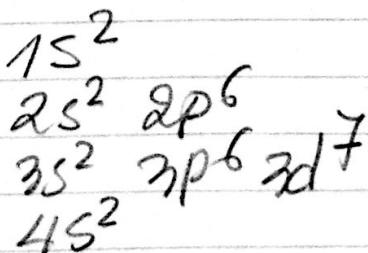 1s²
2s² 2p⁶
3s² 3p⁶ 3d⁷
4s²